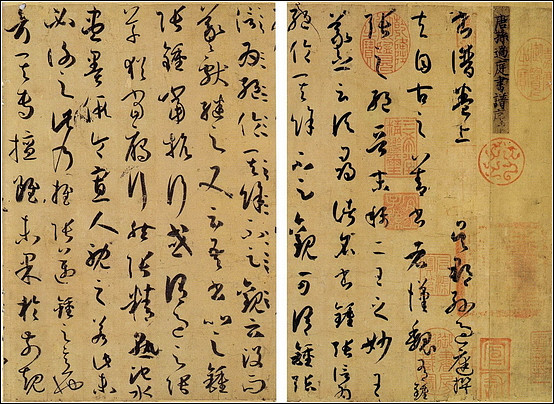 唐孫過庭書譜序上
書譜卷上 吳郡孫過庭撰
夫自古之善書者漢魏有鍾
張之絕晉末稱二王之妙王
羲之云頃尋諸名書鍾張信為
絕倫其餘不足觀可謂鍾張
信為絕倫其餘不足觀云沒而
羲獻繼之又云吾書比之鍾
張鍾當抗行或謂過之張
草猶當雁行然張精熟池水
盡墨假令寡人耽之若此未
必謝之此乃推張邁鍾之意也
考其專擅雖未果於前規